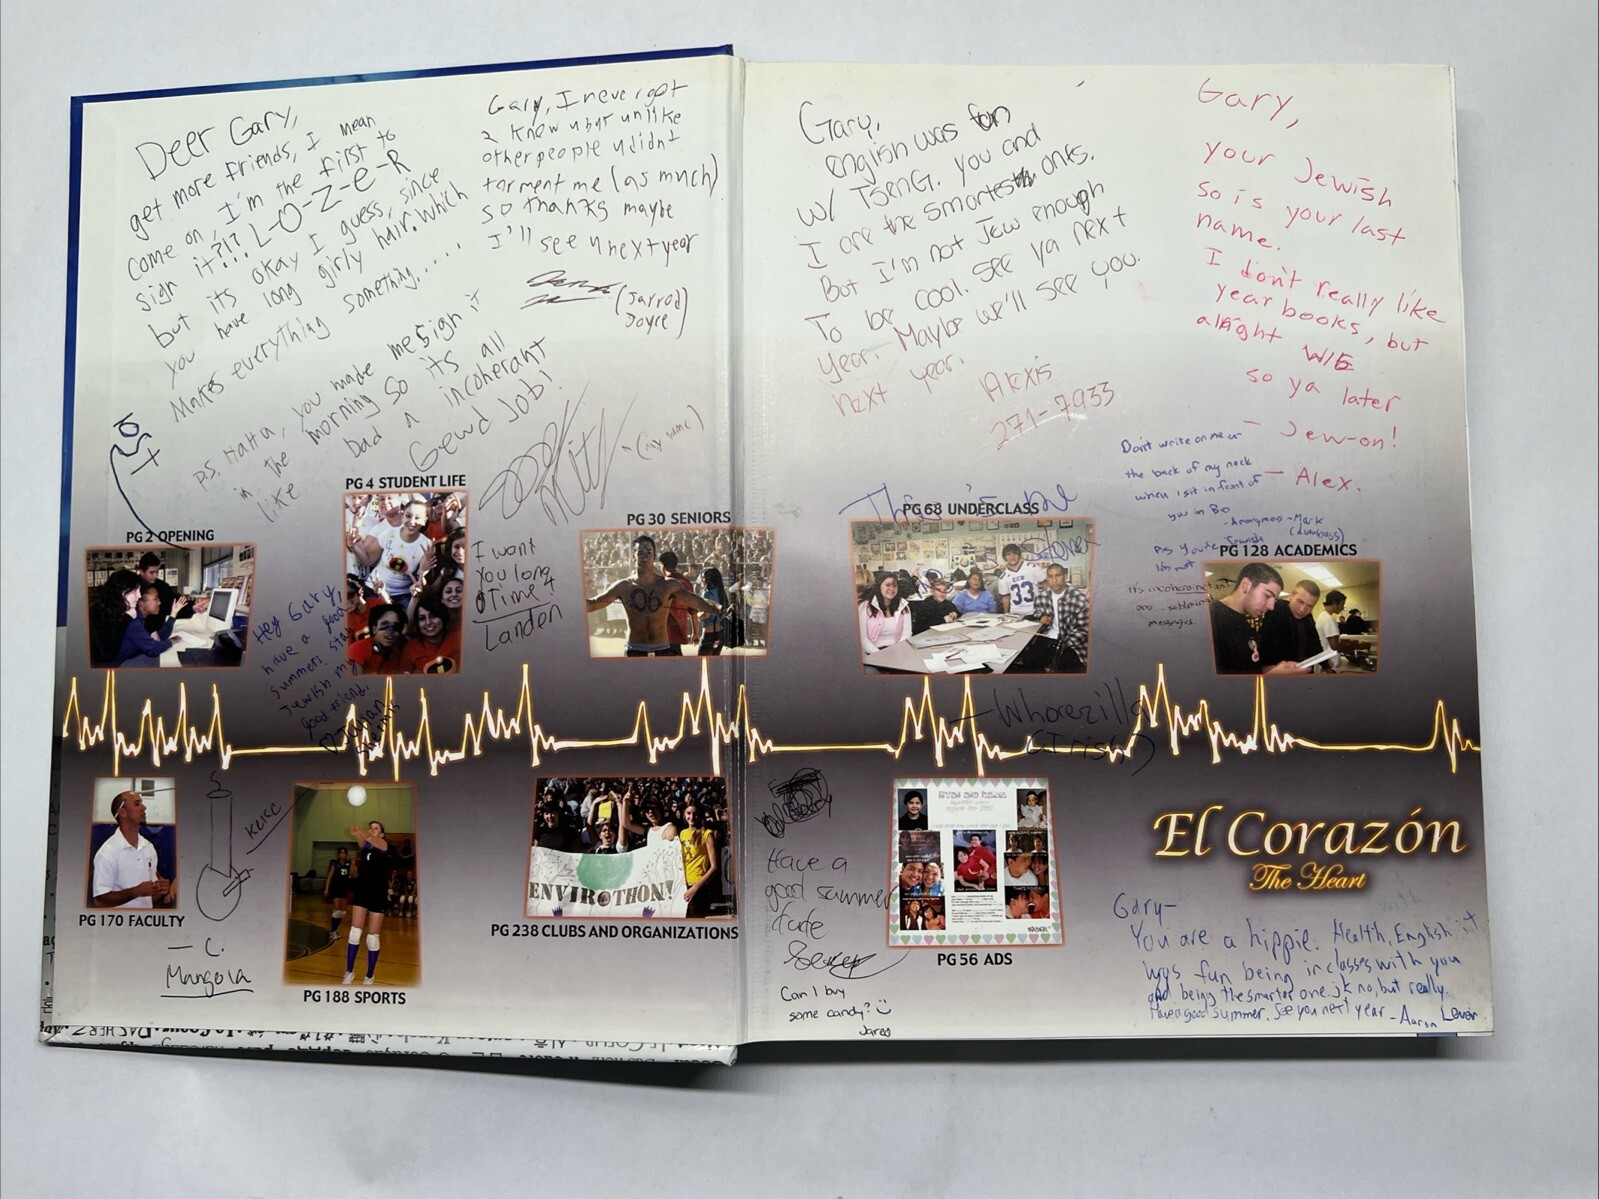 Deer Gary,
get more friends, I mean
come on, I'm the first to
sign it?!? L-O-Z-e-R
but its okay I guess, since
you have long girly hair. Which
Makes everything something....
p.s. HaHa, you made me sign it
in the morning so its all
like bad a incoherant
Gewd Job!
(my name)
Gary, I never got
2 know u but unlike
other people u didnt
torment me (as much)
so thanks maybe
I'll see u next year
(Jarrod
Joyce)
Gary,
english was fun
w/ TsenG. you and
I are the smartest ones.
But I'm not Jew enough
To be cool. see ya next
year. Maybe we'll see you
next year.
Alexis
271-7933
Gary,
your Jewish
so is your last
name.
I don't really like
year books, but
alright
so ya later
- Jew-on!
- Alex.
Don't write on me or
the back of my neck
when I sit in front of
you in Bio
-Anonymous-Mark
(dumbass)
PS You're Jewish
I'm not
PG 4 STUDENT LIFE
PG 2 OPENING
PG 30 SENIORS
PG 68 UNDERCLASS
PG 128 ACADEMICS
I want
You long
Time 4
Landen
06
33
Hey Gary,
have a good
summer! stay
Jewish my
good friend.
- Whorezilla
(Irish)
KCKC
- C.
Mangola
ENVIROTHON!
PG 170 FACULTY
PG 188 SPORTS
PG 238 CLUBS AND ORGANIZATIONS
Have a
good summer
dude
Can I buy
some candy?
Jared
PG 56 ADS
El Corazón
The Heart
Gary-
You are a hippie. Health, English it
was fun being in classes with you
and being the smarter one. jk no, but really.
Have good summer. See you next year - Aaron Lever